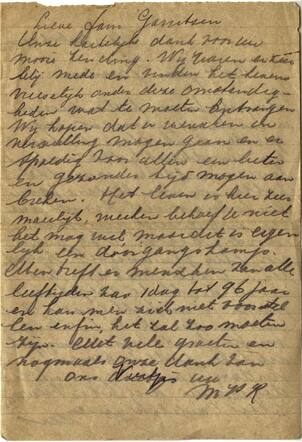 Lieve Fam Garritsen
Onze hartelijke dank voor uw
mooie zending. Wij waren er zeer
blij mede en vinden het tevens
vreselijk onder deze omstandig-
heden wat te moeten ontvangen
Wij hopen dat uw wenschen in
vervulling mogen gaan en er
spoedig voor allen een beter
en gezonder tijd mogen aan
breken. Het leven is hier zeer
moeilijk, werken behoef je niet
het mag wel, maar dit is eigen
lijk een doorgangskamp.
Men treft er menschen van alle
leeftijden van 1 dag tot 96 jaar
en kan men zich niet voorstel
len enfin, het zal zoo moeten
zijn. Met vele groeten en
nogmaals onze dank van
ons uw